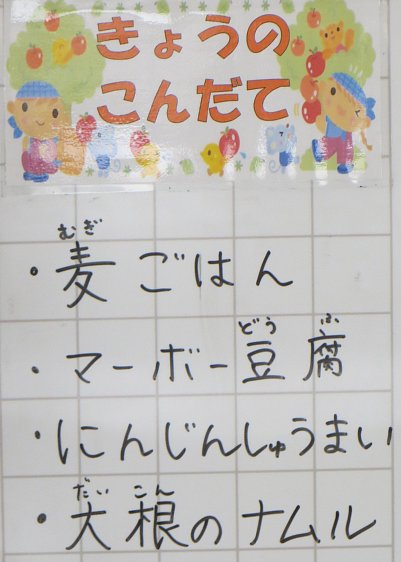 きょうの
こんだて
むぎ
・麦ごはん
どう ふ
・マーボー豆腐
・にんじんしゅうまい
だい こん
・大根のナムル